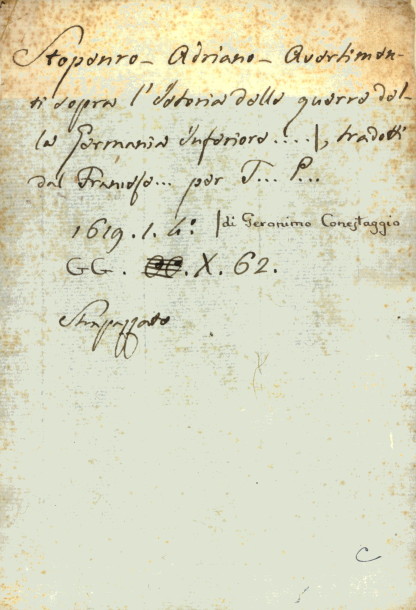 Stopenro - Adriano - Avertimen-
ti sopra l'Istoria delle guerre del-
la Germania Inferiore....|, tradotti
dal Franciese... per T... P...
1619. 1. 4.º |di Geronimo Conestaggio
GG. .X. 62.
Strapazzato
C